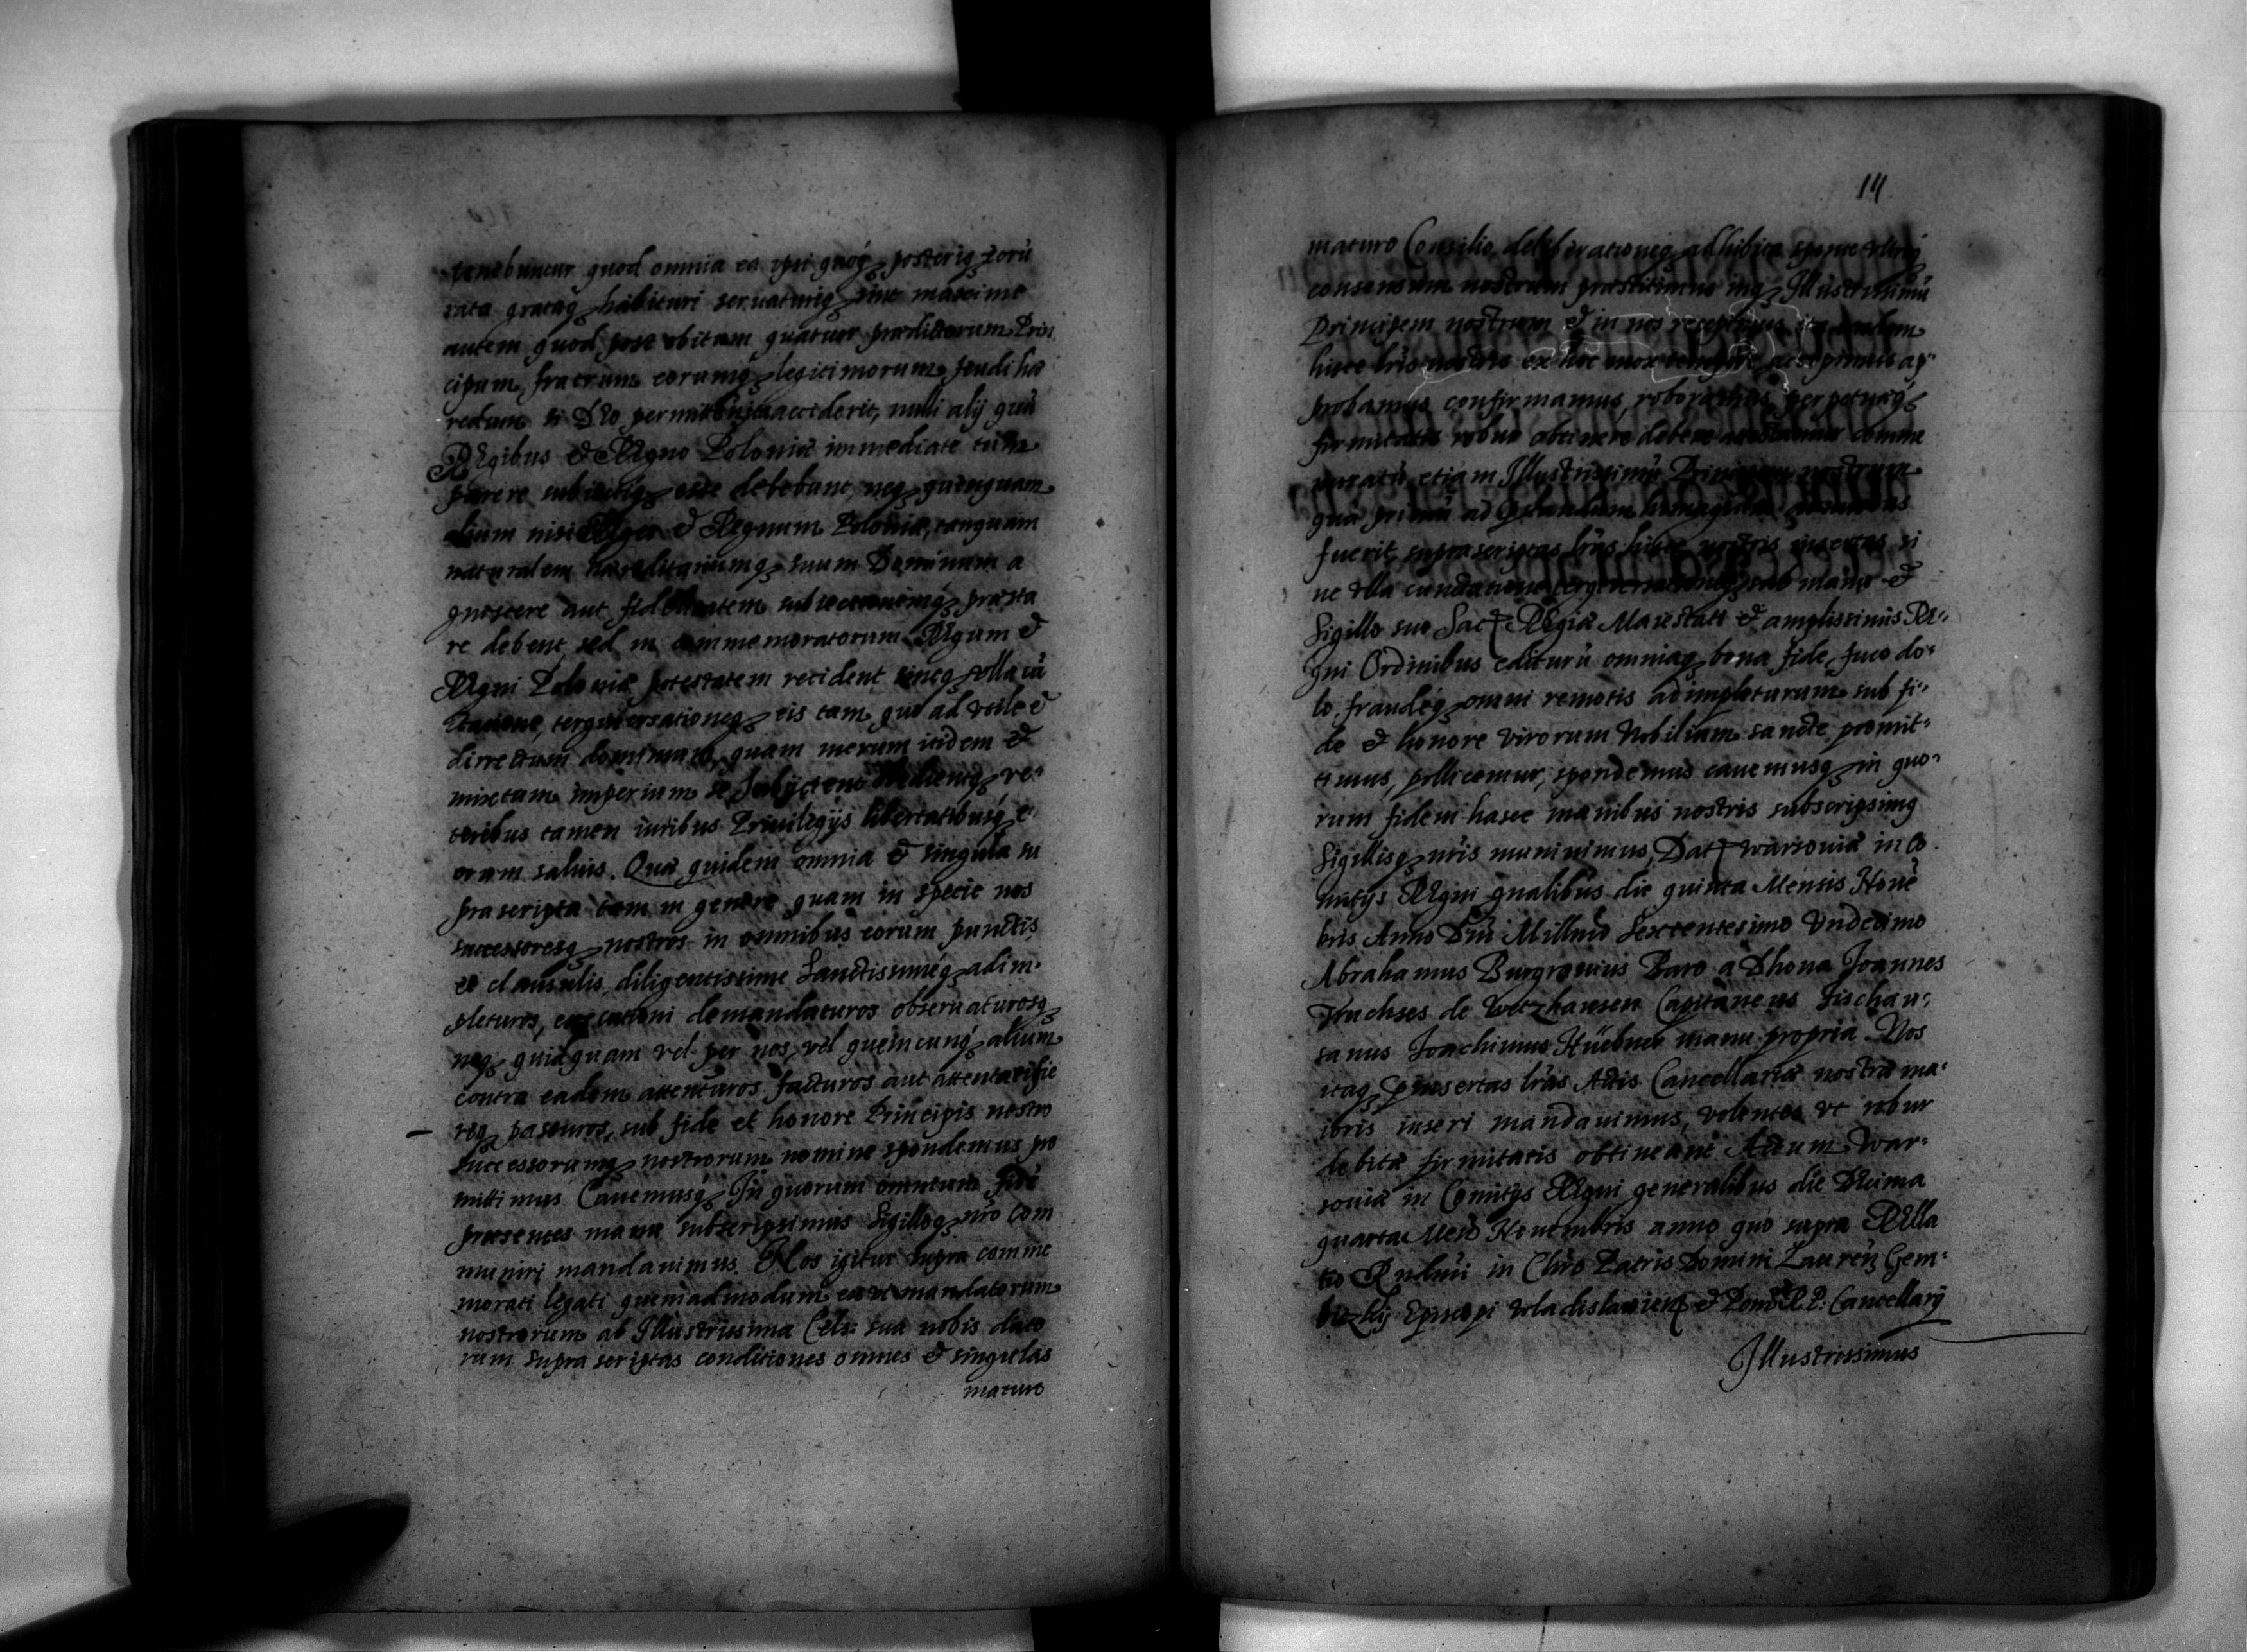 tenebuntur quod omnia ea ipsi quoq₃ posteriq₃ eorū
rata grataq₃ habituri seruaturiq₃ sint maxime
autem quod post obitum quatuor prædictorum Prin
cipum fratrum eorumq₃ legitimorum feudi hæ
redum si Deo permittente acciderit, nulli alij quā
Regibus et Regno Poloniæ immediate tum
parere subiectiq₃ esse debebunt, neq₃ quenquam
alium nisi Reges et Regnum Poloniæ, tanquam
naturalem hæreditariumq₃ suum Dominum a
gnoscere aut fidelitatem subiectionemq₃ præsta
re debent, sed in commemoratorum Regum et
Regni Poloniæ potestatem recident sineq₃ vlla cū
ctatione, tergiuersationeq₃ eis tam quo ad vtile et
dirrectum dominium, quam merum itidem et
mixtum imperium se subijcient dedentq₃, ve⸗
teribus tamen iuribus Priuilegijs libertatibusq₃ e⸗
orum saluis. Quæ quidem omnia et singula su
prascripta tam in genere quam in specie nos
successoresq₃ nostros in omnibus eorum punctis
et clausulis diligentissime Sanctissimeq₃ adim⸗
pleturos, executioni demandaturos obseruaturosq₃
neq₃ quidquam vel per nos, vel quemcunq₃ alium
contra eadem attenturos facturos aut attentari fie
riq₃ passuros, sub fide et honore Principis nostro
successorumq₃ nostrorum nomine spondemus pro
mittimus Cauemusq₃ In quorum omnium fidē
præsentes manu subscripsimus Sigilloq₃ nr̄o com
muniri mandauimus. Nos igitur supra comme
morati legati quemadmodum ea vt mandatorum
nostrorum ab Illustrissima Cels: sua nobis dato
rum supra scriptas conditiones omnes et singulas
maturo
14
maturo Consilio deliberationeq₃ adhibita sponte vltroq₃
consensum nostrum præstitimus inq₃ Illustrissimū
Principem nostrum et in nos recepimus ita easdem
hisce lr̄is nostris ex hoc acceptamus ap⸗
probamus confirmamus, roboramus, perpetuæq₃
firmitatis robur obtinere debere comme
moratū etiam Illustrissimū Principem nostrum
quā primū ad præstandum homagium
fuerit, suprascriptas lr̄as hisce nostris insertas si
ne vlla cunctatione tergiversationeq₃ sub manu et
Sigillo suo Sacræ Regiæ Maiestati et amplissimis Re⸗
gni Ordinibus editurū omniaq₃ bona fide, fuco do⸗
lo, fraudeq₃ omni remotis adimpleturum sub fi⸗
de et honore virorum Nobilium sancte promit⸗
timus, pollicemur, spondemus cauemusq₃ in quo⸗
rum fidem hasce manibus nostris subscripsimꝰ
Sigillisq₃ nr̄is muniuimus, Datæ Warsouiæ in Co
mitijs Regni gnālibus die quinta Mensis Nouē
bris Anno Dn̄i Millmo Sexcentesimo Vndecimo
Abrahamus Burgrauius Baro a Dhona Joannes
Truchses de Wetzhausen Capitaneus Fischau⸗
sanus Joachimus Hüebner manu propria. Nos
itaq₃ præinsertas lr̄as Actis Cancellariæ nostræ ma⸗
ioris inseri mandauimus, volentes vt robur
debitæ firmitatis obtineant Actum War⸗
souiæ in Comitijs Regni generalibus die Decima
quarta Mens Nouembris anno quo supra Rela
tio Rndmi in Chro Patris Domini Lauren Gem⸗
bitzkij Episcopi Wladislauien et Pom R. P. Cancellarij
Illustrissimus